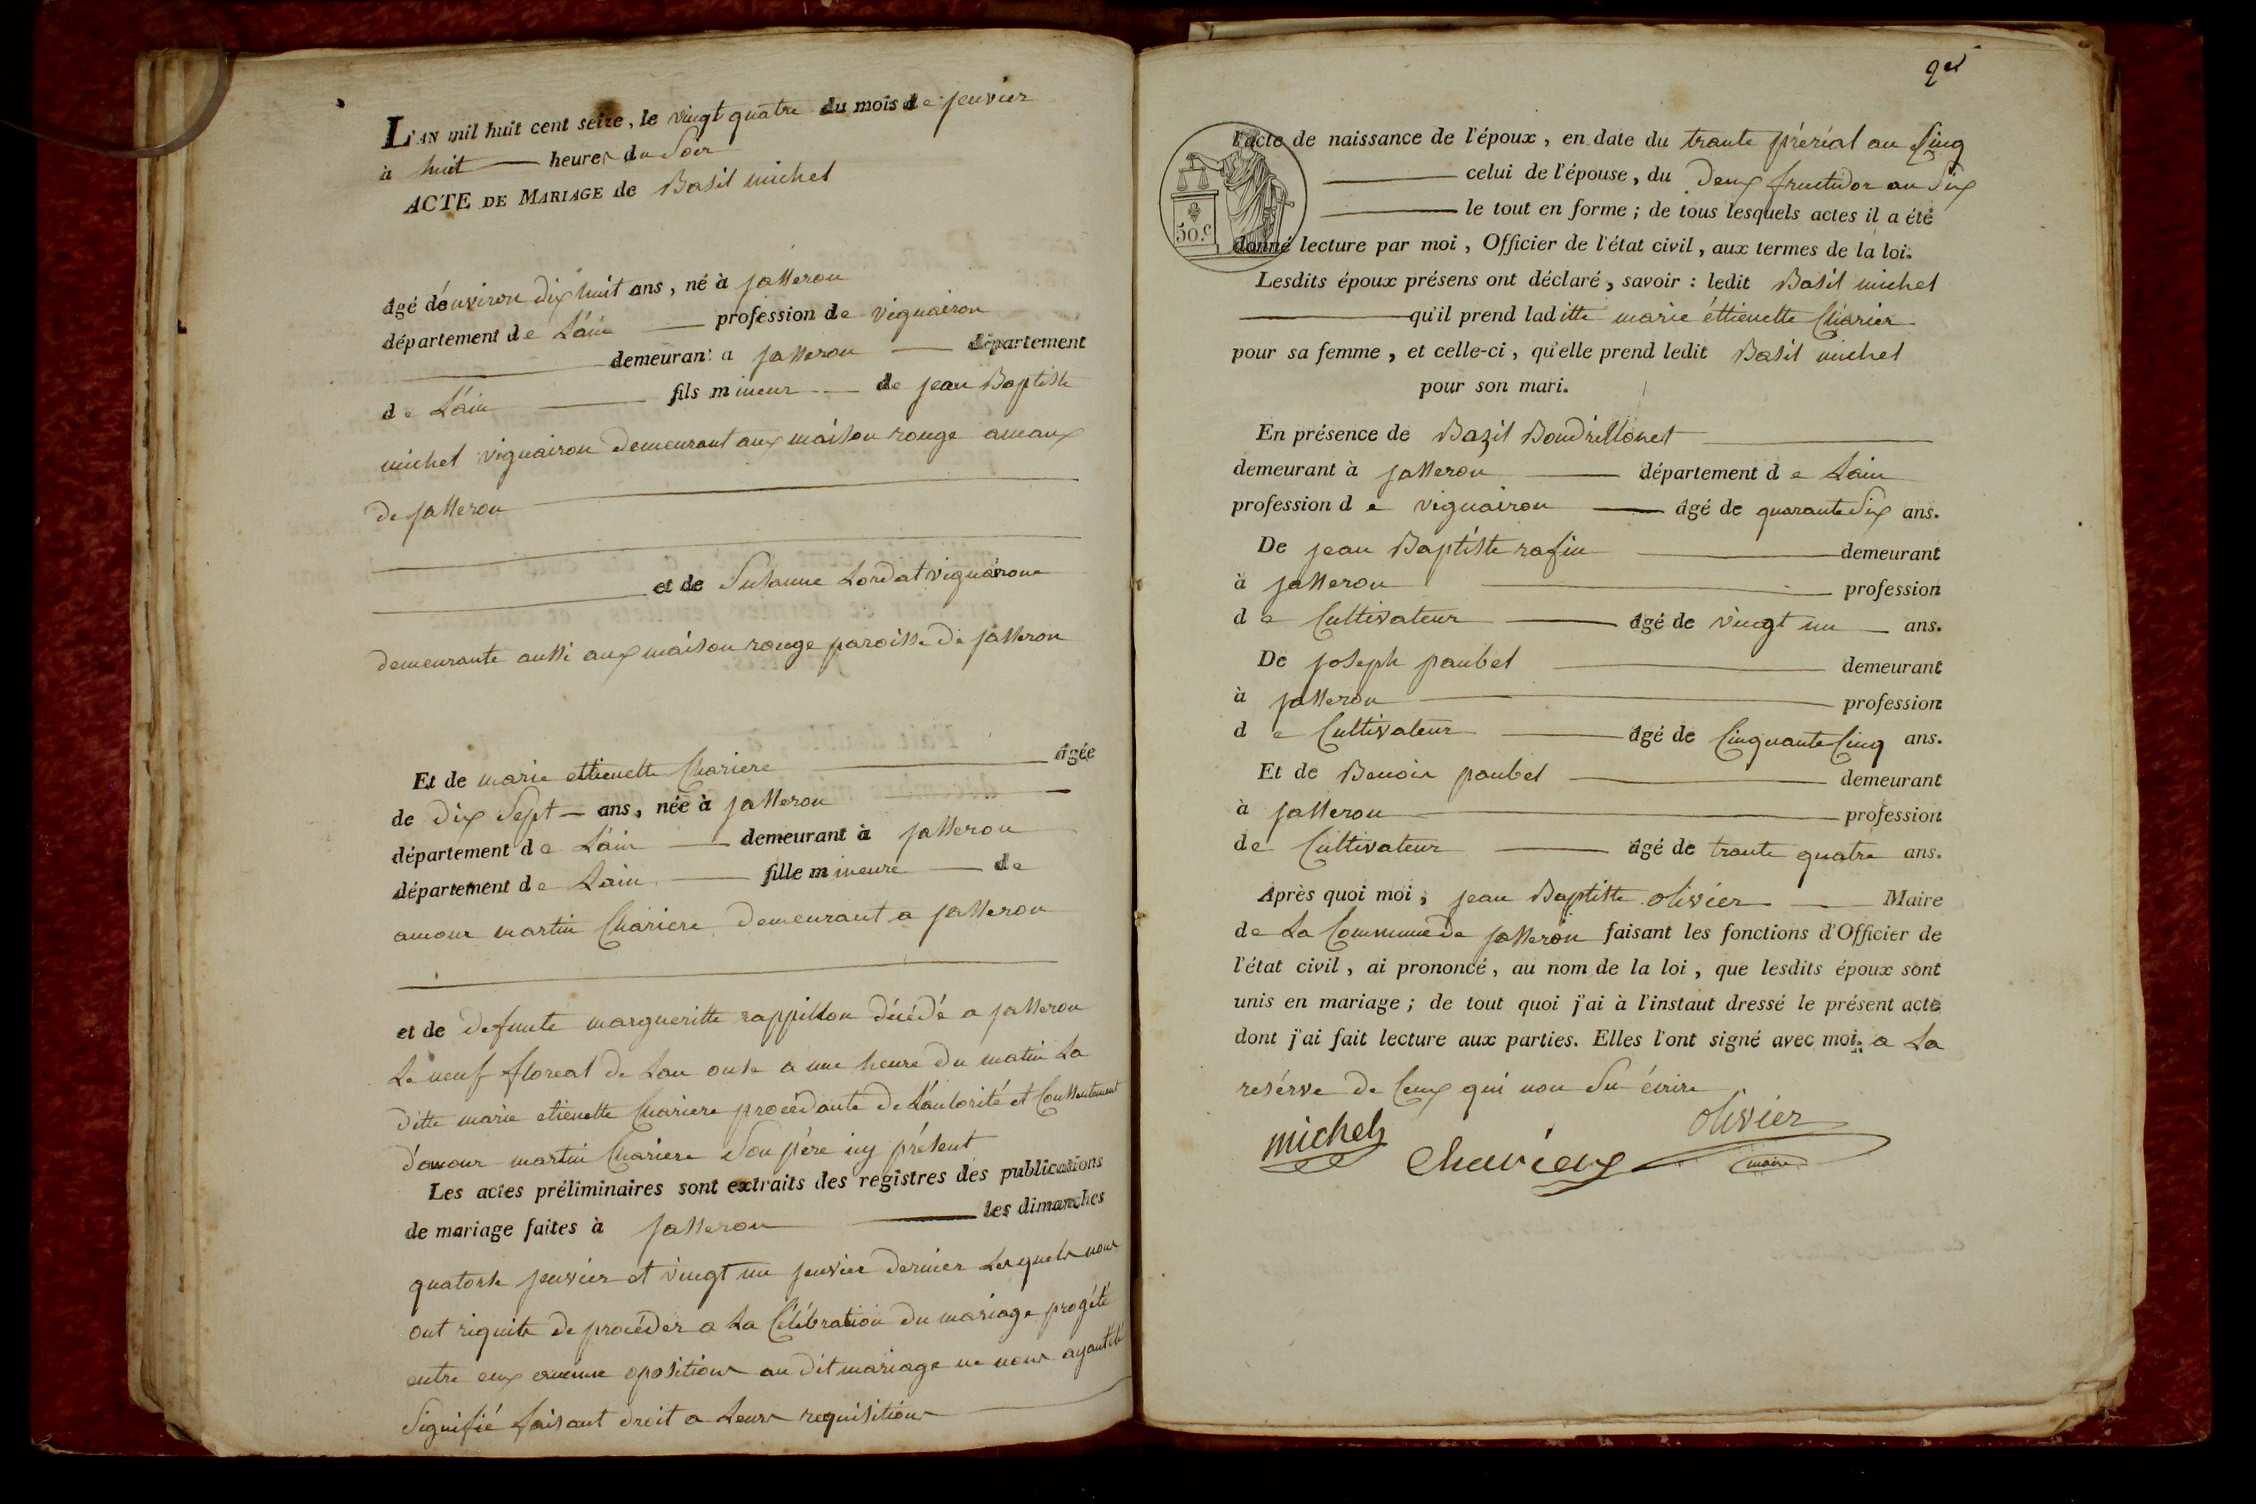 L'AN mil huit cent seize, le vingt quatre du mois de jenvier
à huit heures du Soir
ACTE DE MARIAGE de Basil michel
âgé d'énviron dix huit ans, né à jasseron
département de L'áin profession de vignairon
demeurant a jasseron département
de L'áin fils mineur de jean Baptiste
michel vignairon demeurant aux maison rouge amaux
de jasseron
et de Susanne Lordat vignairone
demeurante aussi aux maison rouge paroisse de jasseron
Et de marie ettienette Chariere âgée
de dix Sept ans, née à jasseron
département de L'áin demeurant à jasseron
département de Lain fille mineure de
amour martin Chariere demeurant a jasseron
et de defunte margueritte rappillon décédé a jasseron
Le neuf floreal de Lan onse a une heure du matin La
ditte marie etienette Chariere procédante de L'áutorité et Conssentement
d'amour martin Chariere Son père icy présent
Les actes préliminaires sont extraits des registres des publications
de mariage faites à jasseron les dimanches
quatorse jenvier et vingt un jenvier dernier Lesquels nous
ont riquite de procéder a La Célébration du mariage progété
entre eux aucune opositions au dit mariage ne nous ayant été
Signifié faisant droit a Leurs requisitions
2er
l'acte de naissance de l'époux, en date du trante préréal an Cinq
celui de l'épouse, du Deux fructidor an Six
le tout en forme; de tous lesquels actes il a été
50.c
donné lecture par moi, Officier de l'état civil, aux termes de la loi.
Lesdits époux présens ont déclaré, savoir: ledit Basil michel
qu'il prend laditte marie éttienette Charier
pour sa femme, et celle-ci, qu'elle prend ledit Basil michel
pour son mari.
En présence de Bazil Boudrillonet
demeurant à jasseron département de Lain
profession de vignairon âgé de quarante Six ans.
De jean Baptiste rafin demeurant
à jasseron profession
de Cultivateur âgé de vingt un ans.
De joseph paubel demeurant
à jasseron profession
de Cultivateur âgé de Cinquante Cinq ans.
Et de Benoin paubel demeurant
à jasseron profession
de Cultivateur âgé de trante quatre ans.
Après quoi moi, jean Baptiste olivier Maire
de La Commune de jasseron faisant les fonctions d'Officier de
l'état civil, ai prononcé, au nom de la loi, que lesdits époux sont
unis en mariage; de tout quoi j'ai à l'instaut dressé le présent acte
dont j'ai fait lecture aux parties. Elles l'ont signé avec moi, a La
resérve de Ceux qui non Su écrire
michel
olivier
maire